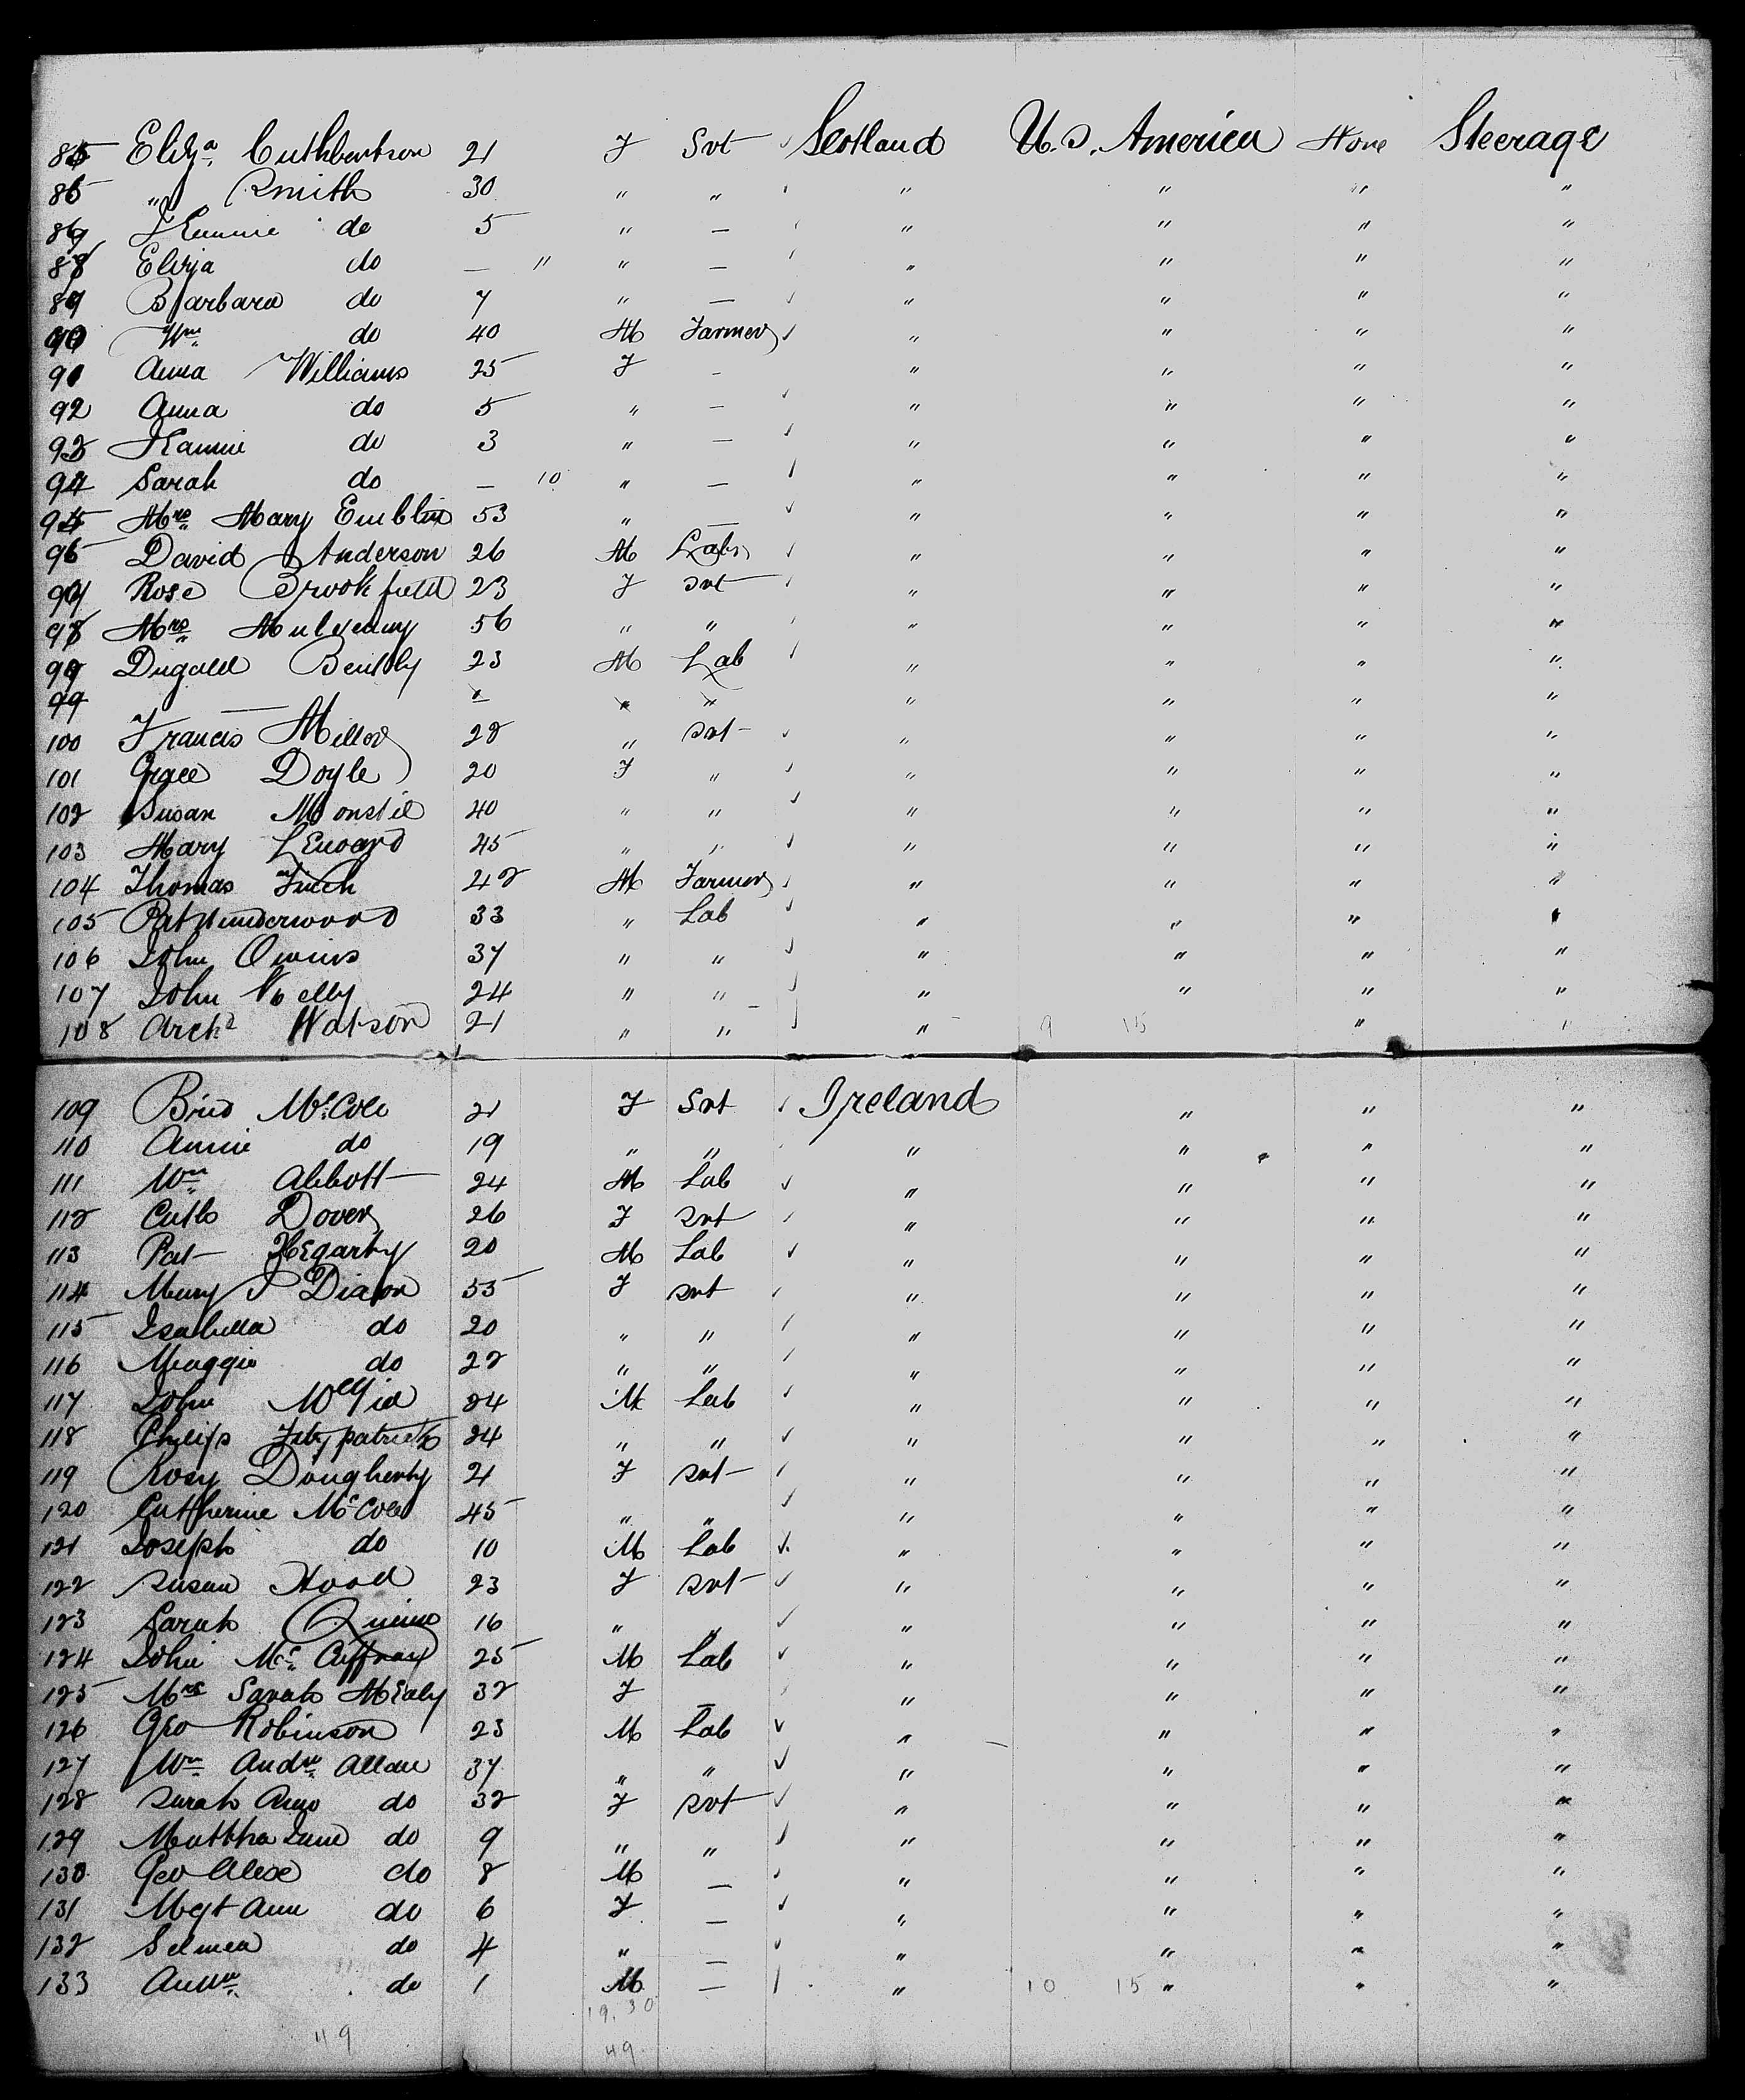 85 Eliza Cuthbertson 21 F Svt ✓ Scotland U.S. America None Steerage
86 " Smith 30 " " " " " "
87 Jeannie do 5 " — " " " "
88 Eliza do — 11 " — " " " "
89 Barbara do 7 " — ✓ " " " "
90 Wm do 40 M Farmer ✓ " " " "
91 Anna Williams 25 F - " " " "
92 Anna do 5 " — ✓ " " " "
93 do 3 " — ✓ " " " "
94 Sarah do — 10 " — ✓ " " " "
95 Mrs Mary 53 " — ✓ " " " "
96 David Anderson 26 M Labr ✓ " " " "
97 Rose Brookfield 23 F Svt ✓ " " " "
98 Mrs 56 " " " " " "
99 Dugald 23 M Lab ✓ " " " "
99 — " " " " " " "
100 Francis Miller 28 " Svt ✓ " " " "
101 Grace Doyle 20 F " ✓ " " " "
102 Susan 40 " " ✓ " " " "
103 Mary Lenoard 45 " " ✓ " " " "
104 Thomas Finch 42 M Farmer ✓ " " " "
105 underwood 33 " Lab ✓ " " " "
106 John Owins 37 " " ✓ " " " "
107 John Kelly 24 " " ✓ " " " "
108 Archd Watson 21 " " ✓ " 9 115 " "
109 Brid McCole 21 F Svt ✓ Ireland " " "
110 Annie do 19 " " " " " "
111 Wm Abbott 24 M Lab ✓ " " " "
112 Cath Dover 26 F Svt ✓ " " " "
113 Pat Hegarty 20 M Lab ✓ " " " "
114 Mary J Dixon 55 F Svt ✓ " " " "
115 Isabella do 20 " " ✓ " " " "
116 Maggie do 22 " " ✓ " " " "
117 John 24 M Lab ✓ " " " "
118 Philip Fitzpatrick 24 " " ✓ " " " "
119 Rosy Dougherty 21 F Svt ✓ " " " "
120 Catherine McCole 45 " " ✓ " " " "
121 Joseph do 10 M Lab ✓ " " " "
122 Susan Hood 23 F Svt ✓ " " " "
123 Sarah Quinn 16 " " ✓ " " " "
124 John Mc 25 M Lab ✓ " " " "
125 Mrs Sarah Mealy 32 F — ✓ " " " "
126 Geo Robinson 23 M Lab ✓ " " " "
127 Wm Andw Allan 37 " " ✓ " " " "
128 Sarah do 32 F Svt ✓ " " " "
129 Mattha Jane do 9 " " ✓ " " " "
130 Geo Alex do 8 M — ✓ " " " "
131 Mgt Ann do 6 F — ✓ " " " "
132 Selmea do 4 " — ✓ " " " "
133 Andw do 1 M — ✓ " 10 15 " " "
19. 30
49 49